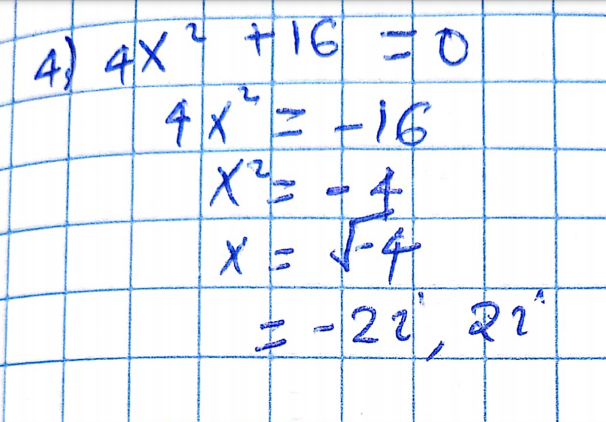 4) 4x² + 16 = 0
4x² = -16
x² = -4
x = √-4
= -2i, 2i